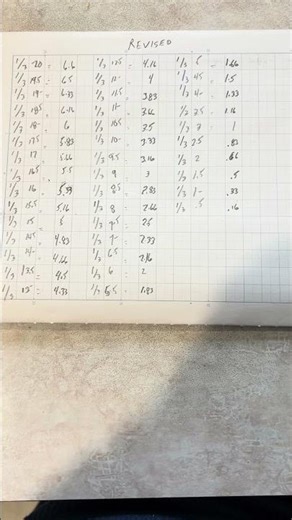 REVISED
1/3 20 = 6.6
1/3 19.5 = 6.5
1/3 19 = 6.33
1/3 18.5 = 6.16
1/3 18 = 6
1/3 17.5 = 5.83
1/3 17 = 5.66
1/3 16.5 = 5.5
1/3 16 = 5.33
1/3 15.5 = 5.16
1/3 15 = 5
1/3 14.5 = 4.83
1/3 14 = 4.66
1/3 13.5 = 4.5
1/3 13 = 4.33
1/3 12.5 = 4.16
1/3 12 = 4
1/3 11.5 = 3.83
1/3 11 = 3.66
1/3 10.5 = 3.5
1/3 10 = 3.33
1/3 9.5 = 3.16
1/3 9 = 3
1/3 8.5 = 2.83
1/3 8 = 2.66
1/3 7.5 = 2.5
1/3 7 = 2.33
1/3 6.5 = 2.16
1/3 6 = 2
1/3 5.5 = 1.83
1/3 5 = 1.66
1/3 4.5 = 1.5
1/3 4 = 1.33
1/3 3.5 = 1.16
1/3 3 = 1
1/3 2.5 = .83
1/3 2 = .66
1/3 1.5 = .5
1/3 1 = .33
1/3 .5 = .16